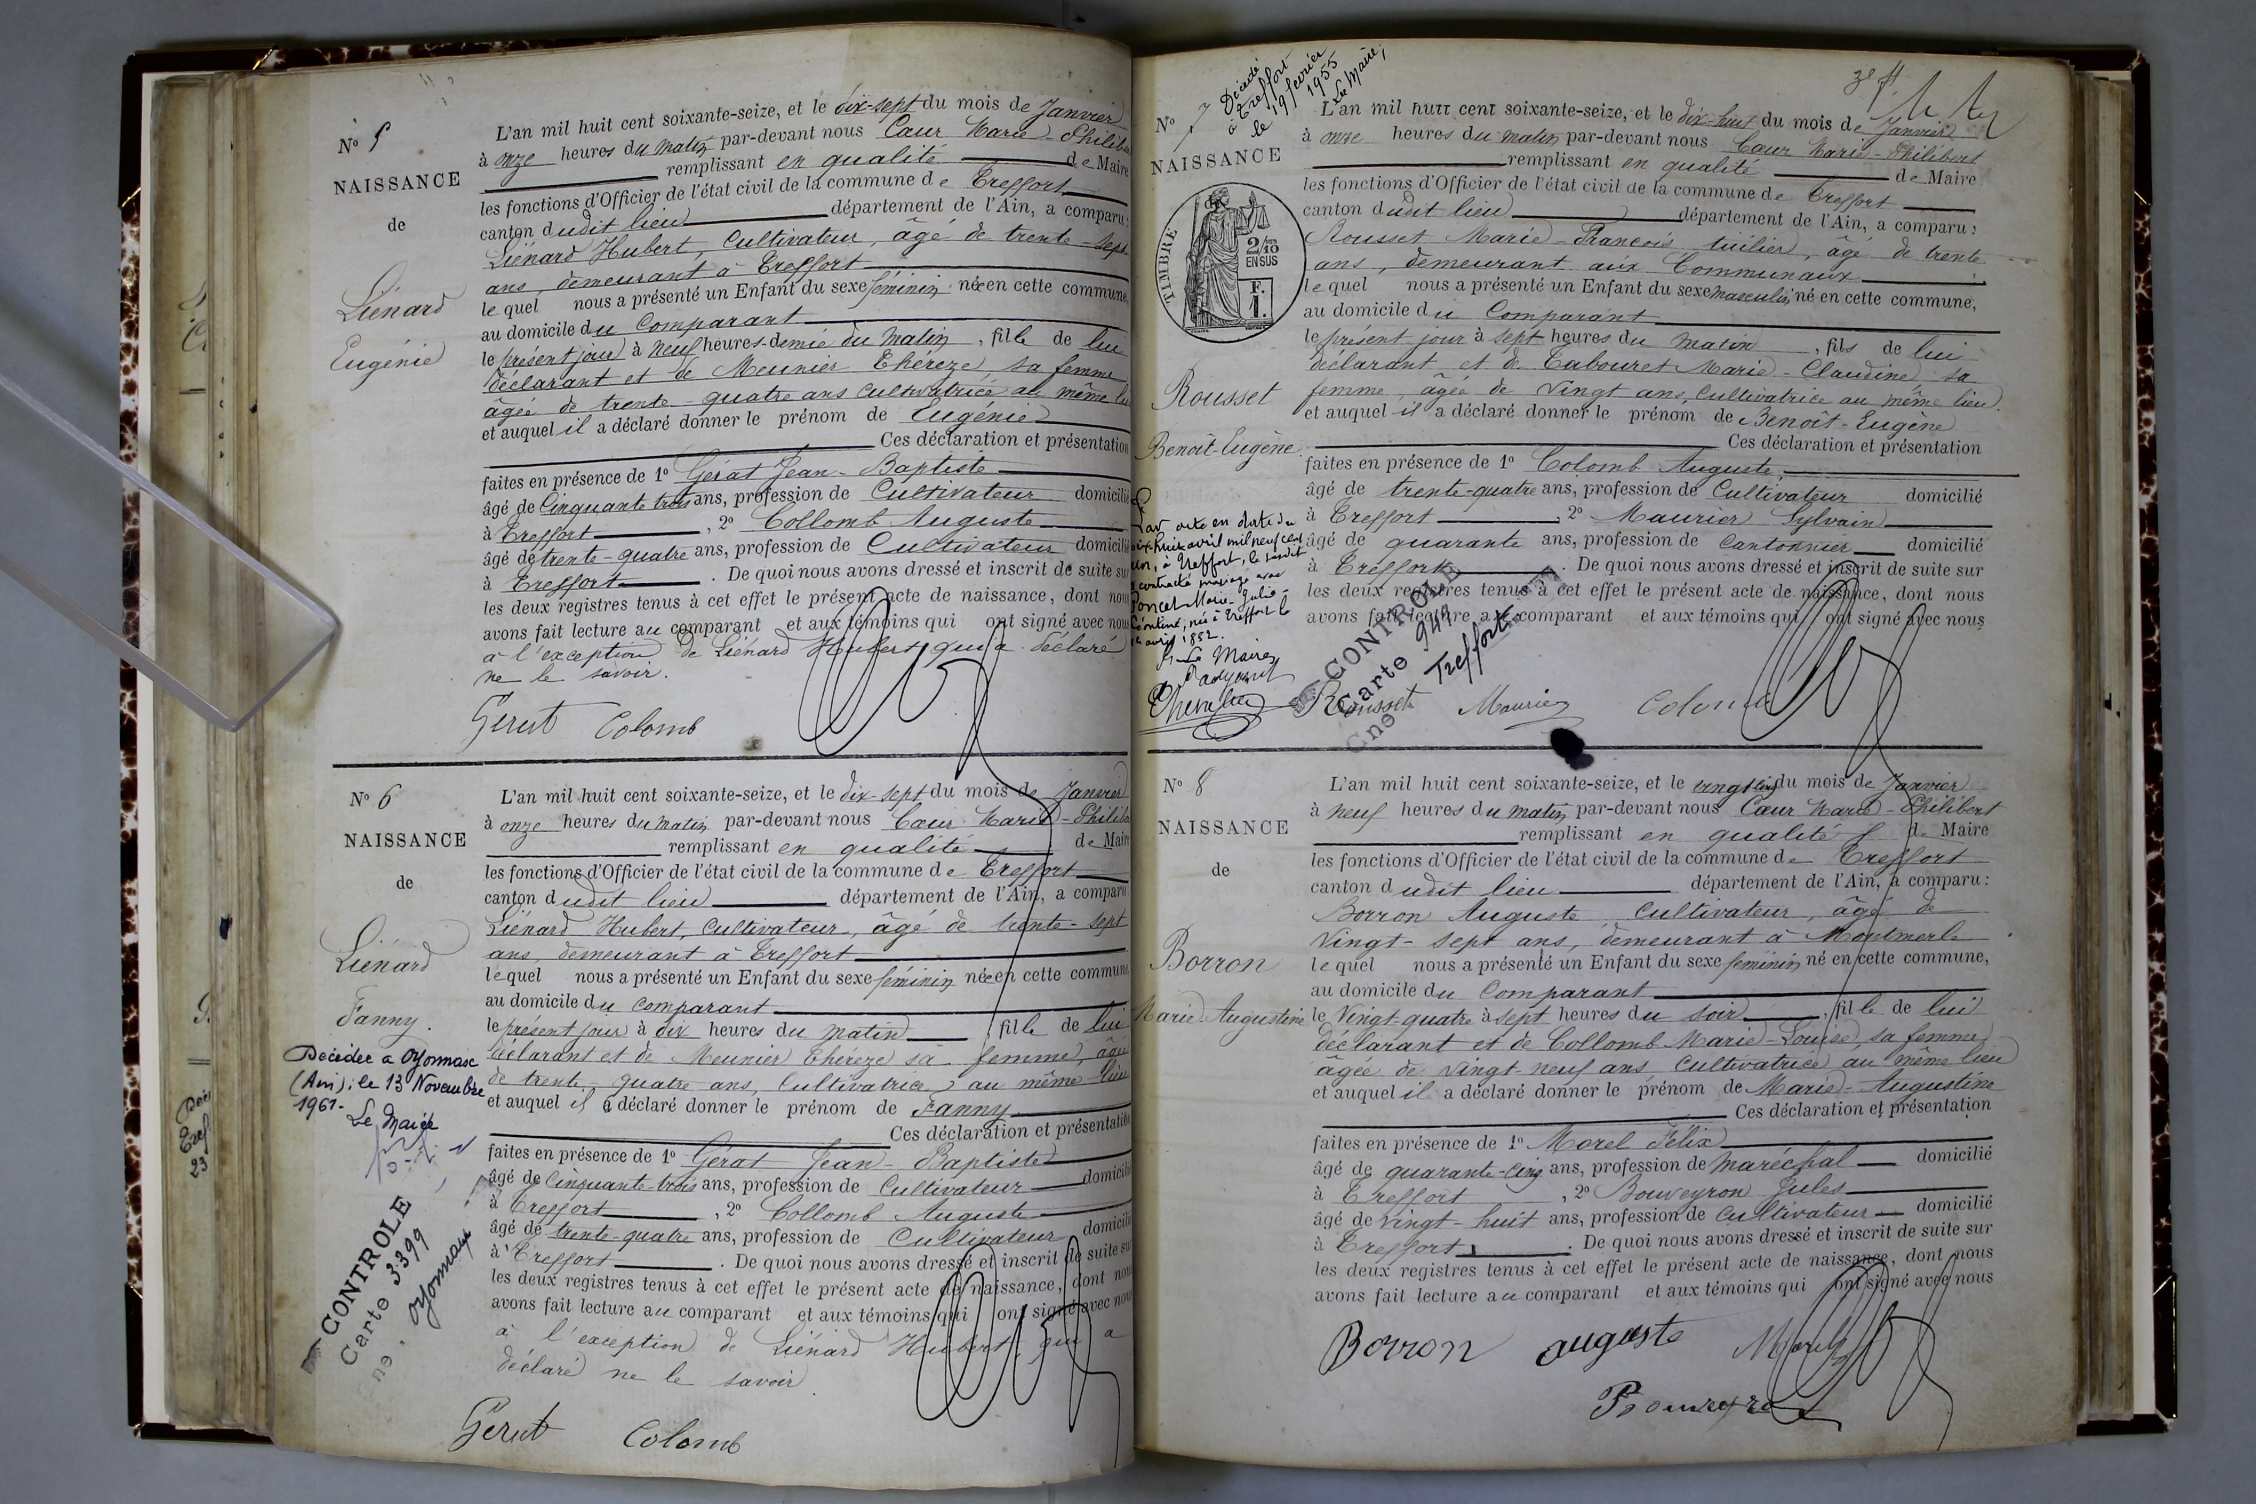 Nº 5
NAISSANCE
de
Liénard
Eugénie
L'an mil huit cent soixante-seize, et le dix-sept du mois de Janvier
à onze heures du matin par-devant nous Cœur Marie-Philib
remplissant en qualité de Maire
les fonctions d'Officier de l'état civil de la commune de Treffort
canton dudit lieu département de l'Ain, a comparu:
Liénard Hubert, Cultivateur, âgé de trente-sept
ans, demeurant à Treffort
lequel nous a présenté un Enfant du sexe féminin née en cette commune,
au domicile du Comparant
le présent jour à neuf heures-demie du matin, fille de lui
déclarant et de Meunier Thérèze, sa femme
âgée de trente-quatre ans cultivatrice au même lieu
et auquel il a déclaré donner le prénom de Eugénie
Ces déclaration et présentation
faites en présence de 1º Gérat Jean-Baptiste
âgé de Cinquante trois ans, profession de Cultivateur domicilié
à Treffort, 2º Collomb Auguste
âgé de trente-quatre ans, profession de Cultivateur domicilié
à Treffort. De quoi nous avons dressé et inscrit de suite sur
les deux registres tenus à cet effet le présent acte de naissance, dont nous
avons fait lecture au comparant et aux témoins qui ont signé avec nous
à l'exception de Liénard Hubert qui a déclaré
ne le savoir.
Gerat Colomb
Nº 6
NAISSANCE
de
Liénard
Fanny.
Décédée à Oyonnax
(Ain) : le 13 Novembre
1961-
Le Maire
CONTROLE
Carte 3399
Cne. Oyonnax
L'an mil huit cent soixante-seize, et le dix-sept du mois de Janvier
à onze heures du matin par-devant nous Cœur Marie-Philib
remplissant en qualité de Maire
les fonctions d'Officier de l'état civil de la commune de Treffort
canton dudit lieu département de l'Ain, a comparu
Liénard Hubert, Cultivateur, âgé de trente-sept
ans, demeurant à Treffort
lequel nous a présenté un Enfant du sexe féminin née en cette commune
au domicile du comparant
le présent jour à dix heures du matin, fille de lui
déclarant et de Meunier Thérèze sa femme, âgée
de trente-quatre ans, Cultivatrice, au même lieu
et auquel il a déclaré donner le prénom de Fanny
Ces déclaration et présentation
faites en présence de 1º Gérat Jean-Baptiste
âgé de Cinquante-trois ans, profession de Cultivateur domicilié
à Treffort, 2º Collomb Auguste
âgé de trente-quatre ans, profession de Cultivateur domicilié
à Treffort. De quoi nous avons dressé et inscrit de suite sur
les deux registres tenus à cet effet le présent acte de naissance, dont nous
avons fait lecture au comparant et aux témoins qui ont signé avec nous
à l'exception de Liénard Hubert, qui a
déclaré ne le savoir
Gerat Colomb
3e f.
Nº 7
Décédé
à Treffort
le 19 février
1955
Le Maire,
NAISSANCE
TIMBRE
2/10 EN SUS
F. 1.
Rousset
Benoît-Eugène.
Par acte en date du
dix-huit avril mil neuf cent
un, à Treffort, le susdit
a contracté mariage avec
Poncet Marie-Julie-
Léontine, née à Treffort le
avril 1882.
Le Maire
Chevalier
CONTROLE
Carte 949
Cne Treffort
L'an mil huit cent soixante-seize, et le dix-huit du mois de Janvier
à onze heures du matin par-devant nous Cœur Marie-Philibert
remplissant en qualité de Maire
les fonctions d'Officier de l'état civil de la commune de Treffort
canton dudit lieu département de l'Ain, a comparu:
Rousset Marie-François tuilier, âgé de trente
ans, demeurant aux Communaux
lequel nous a présenté un Enfant du sexe masculin né en cette commune,
au domicile du Comparant
le présent jour à sept heures du matin, fils de lui
déclarant et de Tabouret Marie-Claudine sa
femme, âgée de Vingt ans, Cultivatrice au même lieu.
et auquel il a déclaré donner le prénom de Benoît-Eugène
Ces déclaration et présentation
faites en présence de 1º Colomb Auguste
âgé de trente-quatre ans, profession de Cultivateur domicilié
à Treffort, 2º Maurier Sylvain
âgé de quarante ans, profession de Cantonnier domicilié
à Treffort. De quoi nous avons dressé et inscrit de suite sur
les deux registres tenus à cet effet le présent acte de naissance, dont nous
avons fait lecture au comparant et aux témoins qui ont signé avec nous
Rousset Maurier Colomb
Nº 8
NAISSANCE
de
Borron
Marie-Augustine
L'an mil huit cent soixante-seize, et le vingt cinq du mois de Janvier
à neuf heures du matin par-devant nous Cœur Marie-Philibert
remplissant en qualité de Maire
les fonctions d'Officier de l'état civil de la commune de Treffort
canton dudit lieu département de l'Ain, a comparu:
Borron Auguste, Cultivateur, âgé de
Vingt-sept ans, demeurant à Montmerle
lequel nous a présenté un Enfant du sexe féminin né en cette commune,
au domicile du Comparant
le Vingt-quatre à sept heures du soir, fille de lui
déclarant et de Collomb Marie-Louise, sa femme
âgée de Vingt-neuf ans, Cultivatrice au même lieu
et auquel il a déclaré donner le prénom de Marie-Augustine
Ces déclaration et présentation
faites en présence de 1º Morel Félix
âgé de quarante-cinq ans, profession de maréchal domicilié
à Treffort, 2º Bouveyron Jules
âgé de vingt-huit ans, profession de Cultivateur domicilié
à Treffort. De quoi nous avons dressé et inscrit de suite sur
les deux registres tenus à cet effet le présent acte de naissance, dont nous
avons fait lecture au comparant et aux témoins qui ont signé avec nous
Borron auguste Morel
Bouveyron